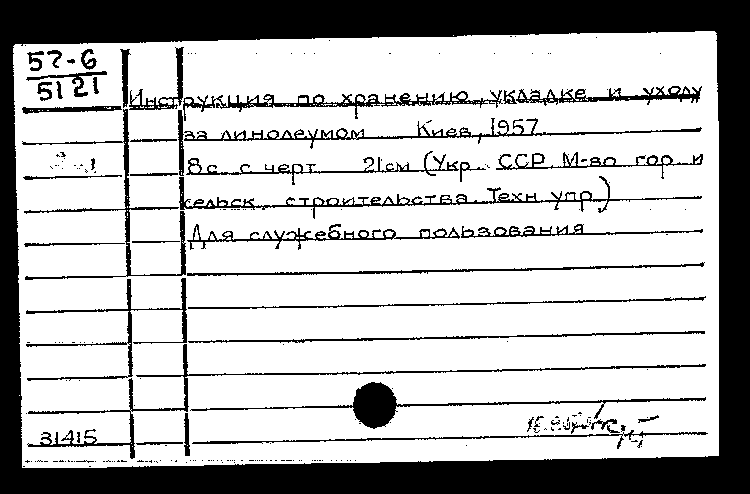 57-6
5121
Инструкция по хранению, укладке и уходу
за линолеумом Киев, 1957
8 с. с черт 21 см (Укр. ССР М-во гор и
сельск. строительства. Техн упр)
Для служебного пользования
31415